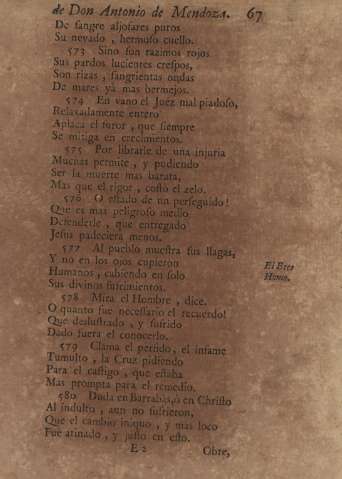 de Don Antonio de Mendoza. 67
De sangre aljofares puros
Su nevado, hermoso cuello.
573 Sino son razimos rojos
Sus pardos lucientes crespos,
Son rizas, sangrientas ondas
De mares ya mas bermejos.
574 En vano el Juez mal piadoso,
Relaxadamente entero
Aplaca el furor, que siempre
Se mitiga en crecimientos.
575 Por librarle de una injuria
Muchas permite, y pudiendo
Ser la muerte mas barata,
Mas que el rigor, costó el zelo.
576 O estado de un perseguido!
Que es mas peligroso medio
Defenderle, que entregado
Jesus padeciera menos.
577 Al pueblo muestra sus llagas,
Y no en los ojos cupieron
Humanos, cabiendo en solo
Sus divinos sufrimientos.
El Ecce
Homo.
578 Mira el Hombre, dice.
O quanto fue necessario el recuerdo!
Que deslustrado, y sufrido
Dado fuera el conocerlo.
579 Clama el perfido, el infame
Tumulto, la Cruz pidiendo
Para el castigo, que estaba
Mas prompta para el remedio.
580 Duda en Barrabás, o en Christo
Al indulto, aun no sufrieron,
Que el cambio iniquo, y mas loco
Fue atinado, y justo en esto.
E 2 Obre,